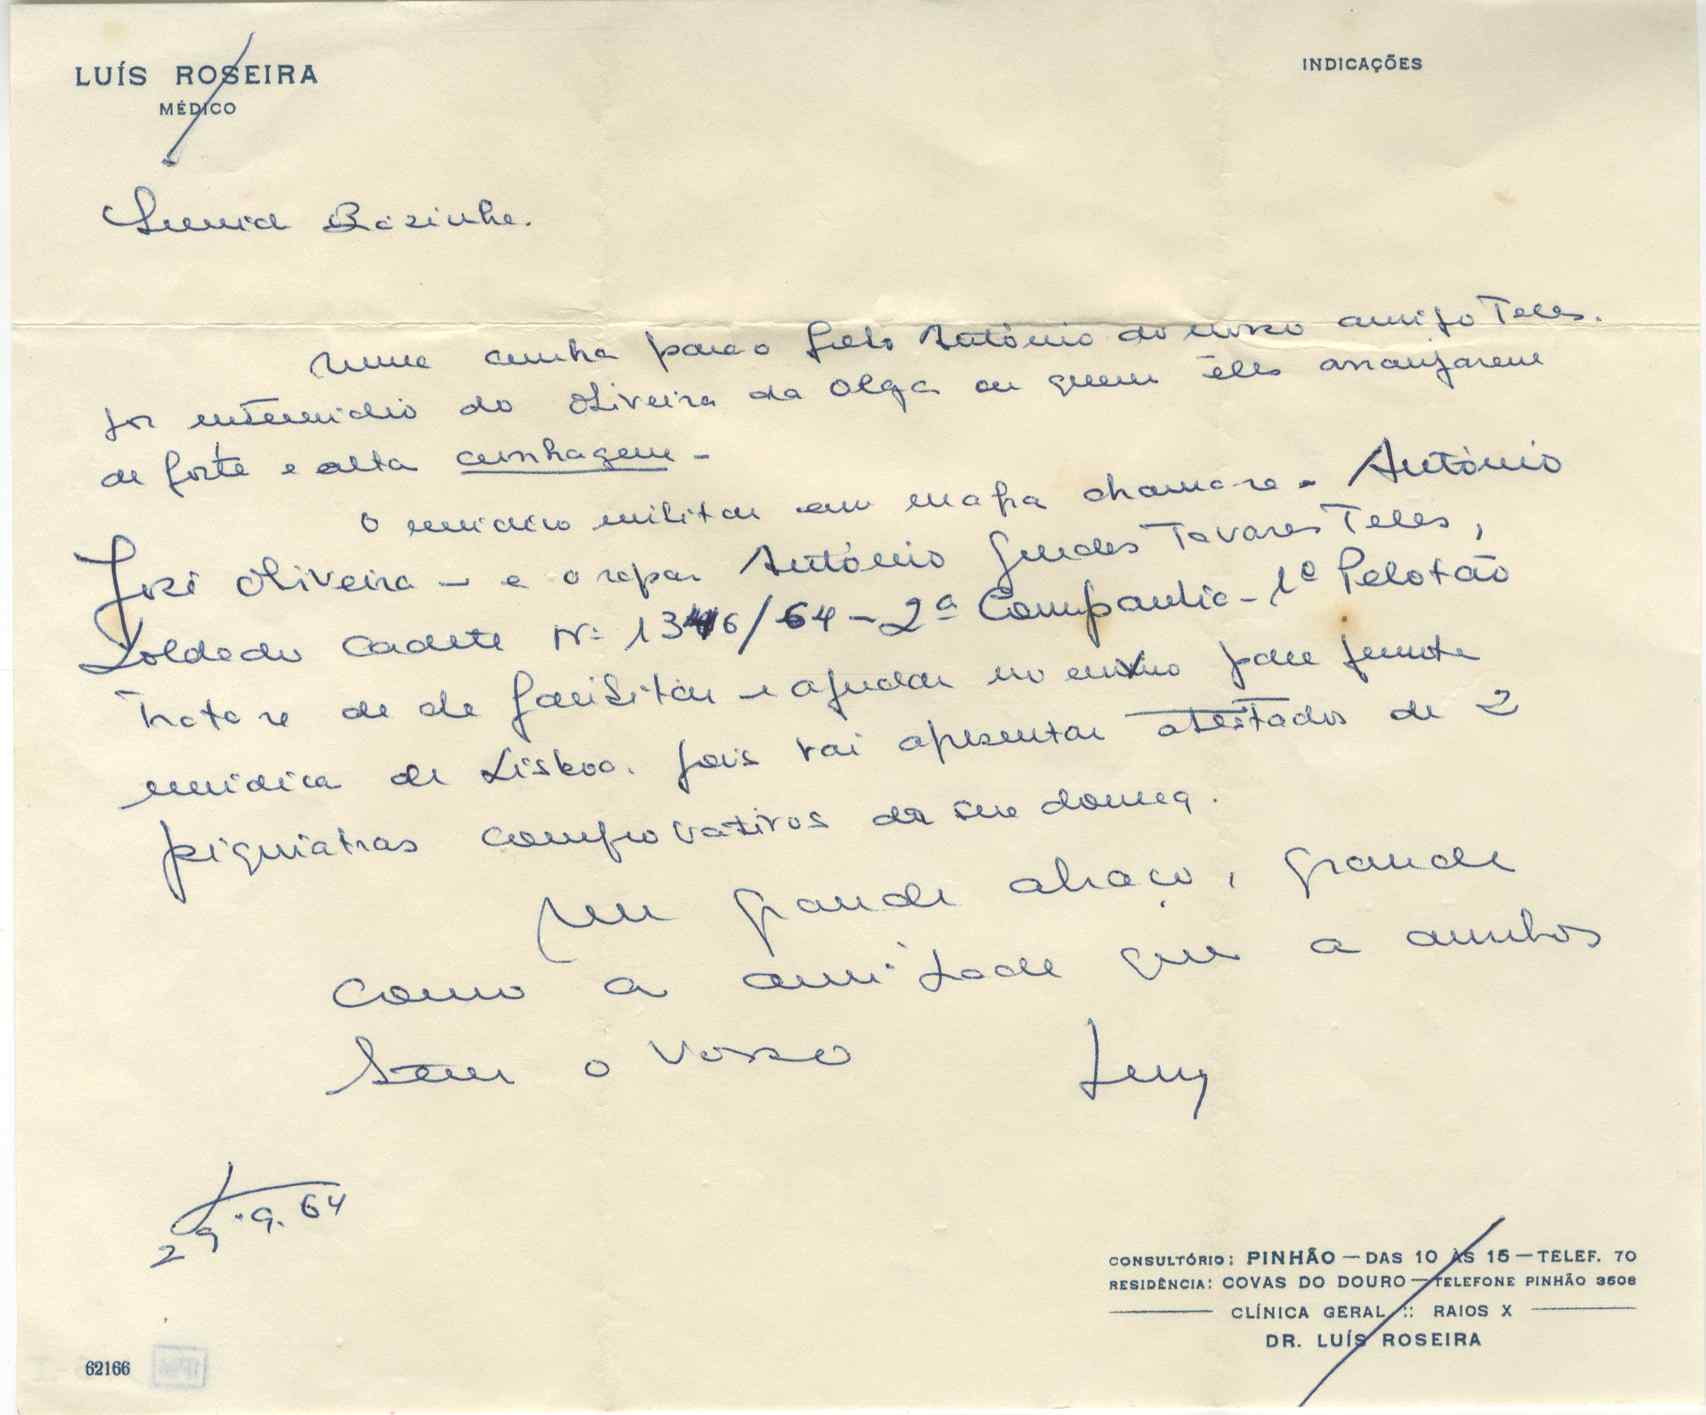 LUÍS ROSEIRA
MÉDICO
INDICAÇÕES
Uma cunha para o filho António do nosso amigo Teles.
por intermédio do Oliveira da Olga ou quem êles arranjarem
de forte e alta cunhagem -
O médico militar em mafra chama-se - António
José Oliveira - e o rapaz António Guedes Tavares Teles,
Soldado Cadete Nº 1346/64 - 2ª Companhia - 1º Pelotão
Trata-se de de facilitar e ajudar no envio para junta
médica de Lisboa. pois vai apresentar atestados de 2
psiquiatras comprovativos da sua doença.
Um grande abraço, grande
como a amizade que a ambos
tem o vosso
29.9.64
CONSULTÓRIO: PINHÃO — DAS 10 ÀS 15 — TELEF. 70
RESIDÊNCIA: COVAS DO DOURO — TELEFONE PINHÃO 3508
CLÍNICA GERAL :: RAIOS X
DR. LUÍS ROSEIRA
62166